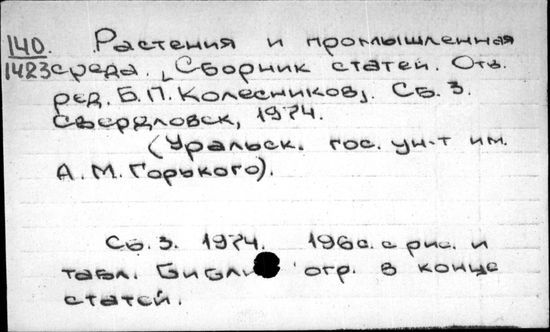 140. Растения и промышленная
1423 среда. [Сборник статей. Отв.
ред. Б.П. Колесников]. Сб. 3.
Свердловск, 1974.
(Уральск. гос. ун-т им.
А.М. Горького).
Сб. 3. 1974. 196с. с рис. и
табл. Библи огр. в конце
статей.